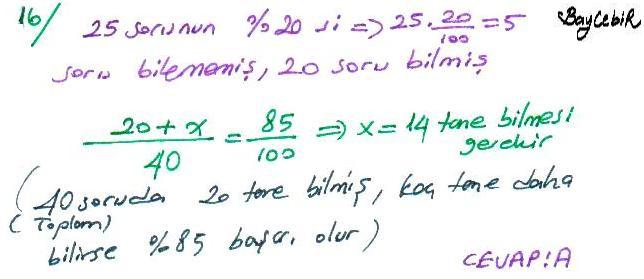 16/ 25 sorunun %20 si => 25 . 20/100 = 5 BayCebir
soru bilememiş, 20 soru bilmiş
20 + x / 40 = 85 / 100 => x = 14 tane bilmesi gerekir
( 40 soruda 20 tane bilmiş, kaç tane daha
( Toplam)
bilirse %85 başarı olur )
CEVAP:A